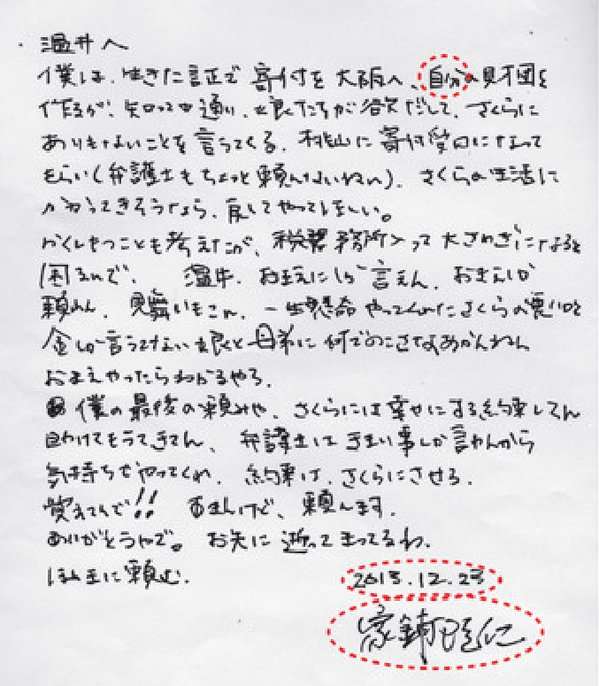 温井へ
僕は、生きた証で寄付を大阪へ、自分の財団を
作るが、知っての通り、娘たちが欲だして、さくらに
ありもないことを言うてくる。桃山に寄付受口になって
もらい(弁護士もちょっと頼んないねん)、さくらの生活に
かかってきそうなら、戻してやってほしい。
かくしもつことも考えたが、税務署務所入って大さわぎになると
困るんで、温井、おまえにしか言えん、おまえしか
頼めん、見舞いもこん、一生懸命やってくれたさくらの悪口と
金しか言うてこない娘と母弟に何でのこさなあかんねん
おまえやったらわかるやろ。
僕の最後の頼みや、さくらには幸せにする約束してん
助けてもうてきてん、弁護士はきまい事しか言わんから
気持ちでやってくれ、約束は、さくらにさせる。
覚えてんで!! すまんけど、頼んます。
ありがとうやで。お先に逝ってまってるわ。
ほんまに頼む。
2013.12.23
家鋪隆仁